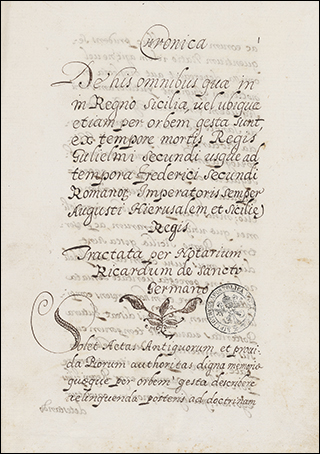 Cronica
De his omnibus qua in
in Regno Sicilia, vel ubique
etiam per orbem gesta sunt,
ex tempore mortis Regis
Gulielmi Secundi usque ad
tempora Frederici Secundi
Romanor. Imperatoris semper
Augusti Hierusalem, et Sicilie
Regis
Tractata per Notarium
Ricardum de Sancto
Germano
Solet Aetas Antiquorum, et provi
da Piorum authoritas digna memoria
queque per orbem gesta describere
relinquenda posteris ad doctrinam